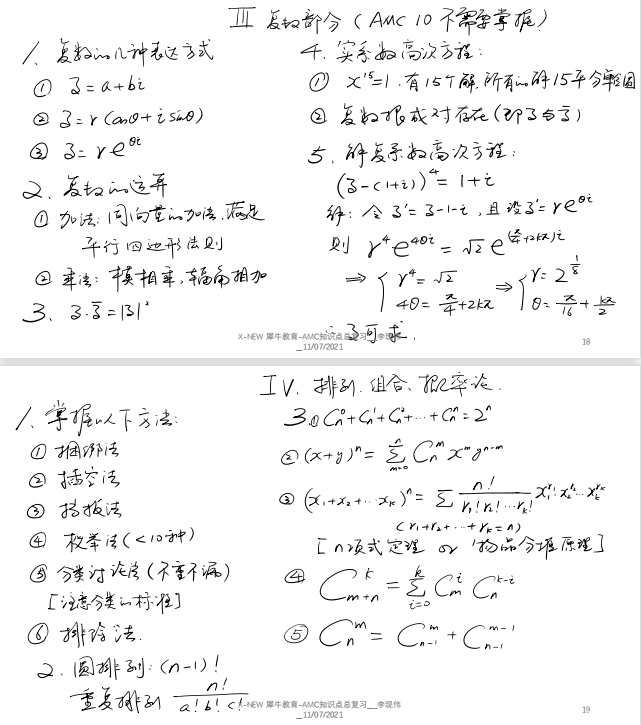 III 复数部分 (AMC 10 不需要掌握)
1、复数的几种表达方式
① z = a+bi
② z = r(cosθ+i sinθ)
③ z = re^{θi}
2、复数的运算
① 加法: 同向量的加法, 满足
平行四边形法则
② 乘法: 模相乘, 辐角相加
3、z·z̄ = |z|²
4、实系数高次方程:
① x^{15}=1. 有15个解, 所有的解15平分单位圆
② 复数根成对存在 (即 z 与 z̄)
5、解复系数高次方程:
(z-(1+i))^4 = 1+i
解: 令 z' = z-1-i, 且设 z' = re^{θi}
则 r^4 e^{4θi} = √2 e^{(π/4+2kπ)i}
⇒ { r^4 = √2 ⇒ { r = 2^{1/8}
4θ = π/4+2kπ θ = π/16 + kπ/2
∴ z 可求.
X-NEW 犀牛教育-AMC知识点总复习__李现伟
__11/07/2021
18
IV. 排列. 组合、概率论.
1、掌握以下方法:
① 捆绑法
② 插空法
③ 挡板法
④ 枚举法 (<10种)
⑤ 分类讨论法 (不重不漏)
[注意分类的标准]
⑥ 排除法.
2. 圆排列: (n-1)!
重复排列 n!/(a! b! c!)
3.① C_n^0+C_n^1+C_n^2+⋯+C_n^n = 2^n
② (x+y)^n = Σ_{m=0}^{n} C_n^m x^m y^{n-m}
③ (x_1+x_2+⋯x_k)^n = Σ n!/(r_1! r_2!⋯r_k!) x_1^{r_1}·x_2^{r_2}⋯x_k^{r_k}
(r_1+r_2+⋯+r_k=n)
[n项式定理 or 物品分堆原理]
④ C_{m+n}^k = Σ_{i=0}^{k} C_m^i C_n^{k-i}
⑤ C_n^m = C_{n-1}^m + C_{n-1}^{m-1}
X-NEW 犀牛教育-AMC知识点总复习__李现伟
__11/07/2021
19